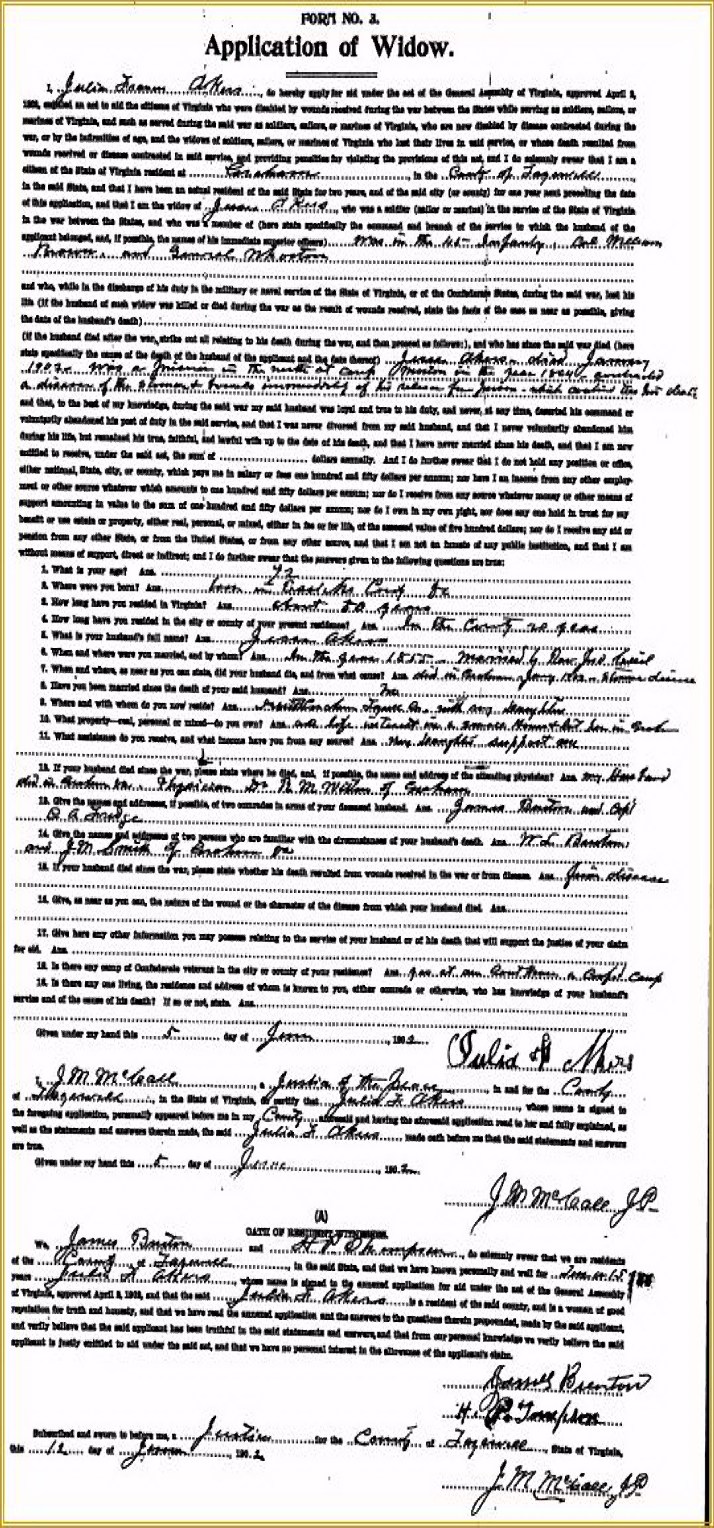 FORM NO. 3.
Application of Widow.
I, Julia Akers, do hereby apply for aid under the act of the General Assembly of Virginia, approved April 2,
1902, entitled an act to aid the citizens of Virginia who were disabled by wounds received during the war between the States while serving as soldiers, sailors, or
marines of Virginia, and such as served during the said war as soldiers, sailors, or marines of Virginia, who are now disabled by disease contracted during the
war, or by the infirmities of age, and the widows of soldiers, sailors, or marines of Virginia who lost their lives in said service, or whose death resulted from
wounds received or disease contracted in said service, and providing penalties for violating the provisions of this act, and I do solemnly swear that I am a
citizen of the State of Virginia resident at Graham, in the County of Tazewell
in the said State, and that I have been an actual resident of the said State for two years, and of the said city (or county) for one year next preceding the date
of this application, and that I am the widow of Jesse Akers, who was a soldier (sailor or marine) in the service of the State of Virginia
in the war between the States, and who was a member of (here state specifically the command and branch of the service to which the husband of the
applicant belonged, and, if possible, the names of his immediate superior officers) Was in the 45 Infantry, Col William
Brown, and General Whorton
and who, while in the discharge of his duty in the military or naval service of the State of Virginia, or of the Confederate States, during the said war, lost his
life (if the husband of such widow was killed or died during the war as the result of wounds received, state the facts of the case as near as possible, giving
the date of the husband's death)
(if the husband died after the war, strike out all relating to his death during the war, and then proceed as follows:), and who has since the war died (here
state specifically the cause of the death of the husband of the applicant and the date thereof) Jesse Akers died January
1902. Was a prisoner in the north at camp in the year 1864 contracted
a disease of the & bowels of his release from prison which caused his death
and that, to the best of my knowledge, during the war my said husband was loyal and true to his duty, and never, at any time, deserted his command or
voluntarily abandoned his post of duty in the said service, and that I was never divorced from my said husband, and that I never voluntarily abandoned him
during his life, but remained his true, faithful, and lawful wife up to the date of his death, and that I have never married since his death, and that I am now
entitled to receive, under the said act, the sum of dollars annually. And I do further swear that I do not hold any position or office,
either national, State, city, or county, which pays me in salary or fees one hundred and fifty dollars per annum; nor have I an income from any other employ-
ment or other source whatever which amounts to one hundred and fifty dollars per annum; nor do I receive from any source whatever money or other means of
support amounting in value to the sum of one hundred and fifty dollars per annum; nor do I own in my own right, nor does any one hold in trust for my
benefit or use estate or property, either real, personal, or mixed, either in fee or for life, of the assessed value of five hundred dollars; nor do I receive any aid or
pension from any other State, or from the United States, or from any other source, and that I am not an inmate of any public institution, and that I am
without means of support, direct or indirect; and I do further swear that the answers given to the following questions are true:
1. What is your age? Ans. 72
2. Where were you born? Ans. born in Va
3. How long have you resided in Virginia? Ans. about 50 years
4. How long have you resided in the city or county of your present residence? Ans. In the County 20 years
5. What is your husband's full name? Ans. Jesse Akers
6. When and where were you married, and by whom? Ans. In the year 1855 Married by Rev. Jno
7. When and where, as near as you can state, did your husband die, and from what cause? Ans. died in Graham Jany 1902 disease
8. Have you been married since the death of your said husband? Ans. No
9. Where and with whom do you now reside? Ans. with my daughter
10. What property—real, personal or mixed—do you own? Ans. life interest in a house & lot in Graham
11. What assistance do you receive, and what income have you from any source? Ans. My daughter support me
12. If your husband died since the war, please state where he died, and, if possible, the name and address of the attending physician? Ans. My Husband
died in Graham Va. Physician Dr R. M. of Graham
13. Give the names and addresses, if possible, of two comrades in arms of your deceased husband. Ans. James Bruton and Capt
C A Fudge
14. Give the names and addresses of two persons who are familiar with the circumstances of your husband's death. Ans. W. L. Bruton,
and J.M. Smith of Graham Va
15. If your husband died since the war, please state whether his death resulted from wounds received in the war or from disease. Ans. from disease
16. Give, as near as you can, the nature of the wound or the character of the disease from which your husband died. Ans.
17. Give here any other information you may possess relating to the service of your husband or of his death that will support the justice of your claim
for aid. Ans.
18. Is there any camp of Confederate veterans in the city or county of your residence? Ans. yes at our a Camp
19. Is there any one living, the residence and address of whom is known to you, either comrade or otherwise, who has knowledge of your husband's
service and of the cause of his death? If so or not, state. Ans.
Given under my hand this 5 day of June, 1902.
Julia F Akers
I, J.M. McCall, a Justice of the Peace, in and for the County
of Tazewell, in the State of Virginia, do certify that Julia F. Akers, whose name is signed to
the foregoing application, personally appeared before me in my County aforesaid and having the aforesaid application read to her and fully explained, as
well as the statements and answers therein made, the said Julia F. Akers made oath before me that the said statements and answers
are true.
Given under my hand this 5 day of June, 1902.
J.M. McCall J.P.
(A)
OATH OF RESIDENT WITNESSES.
We, James Bruton and H P Thompson, do solemnly swear that we are residents
of the County of Tazewell, in the said State, and that we have known personally and well for 15
years Julia F. Akers, whose name is signed to the annexed application for aid under the act of the General Assembly
of Virginia, approved April 2, 1902, and that the said Julia F. Akers is a resident of the said county, and is a woman of good
reputation for truth and honesty, and that we have read the annexed application and the answers to the questions therein propounded, made by the said applicant,
and verily believe that the said applicant has been truthful in the said statements and answers, and that from our personal knowledge we verily believe the said
applicant is justly entitled to aid under the said act, and that we have no personal interest in the allowance of the applicant's claim.
James Bruton
H. P. Tompson
Subscribed and sworn to before me, a Justice for the County of Tazewell, State of Virginia,
this 12 day of June, 1902.
J.M. McCall J.P.